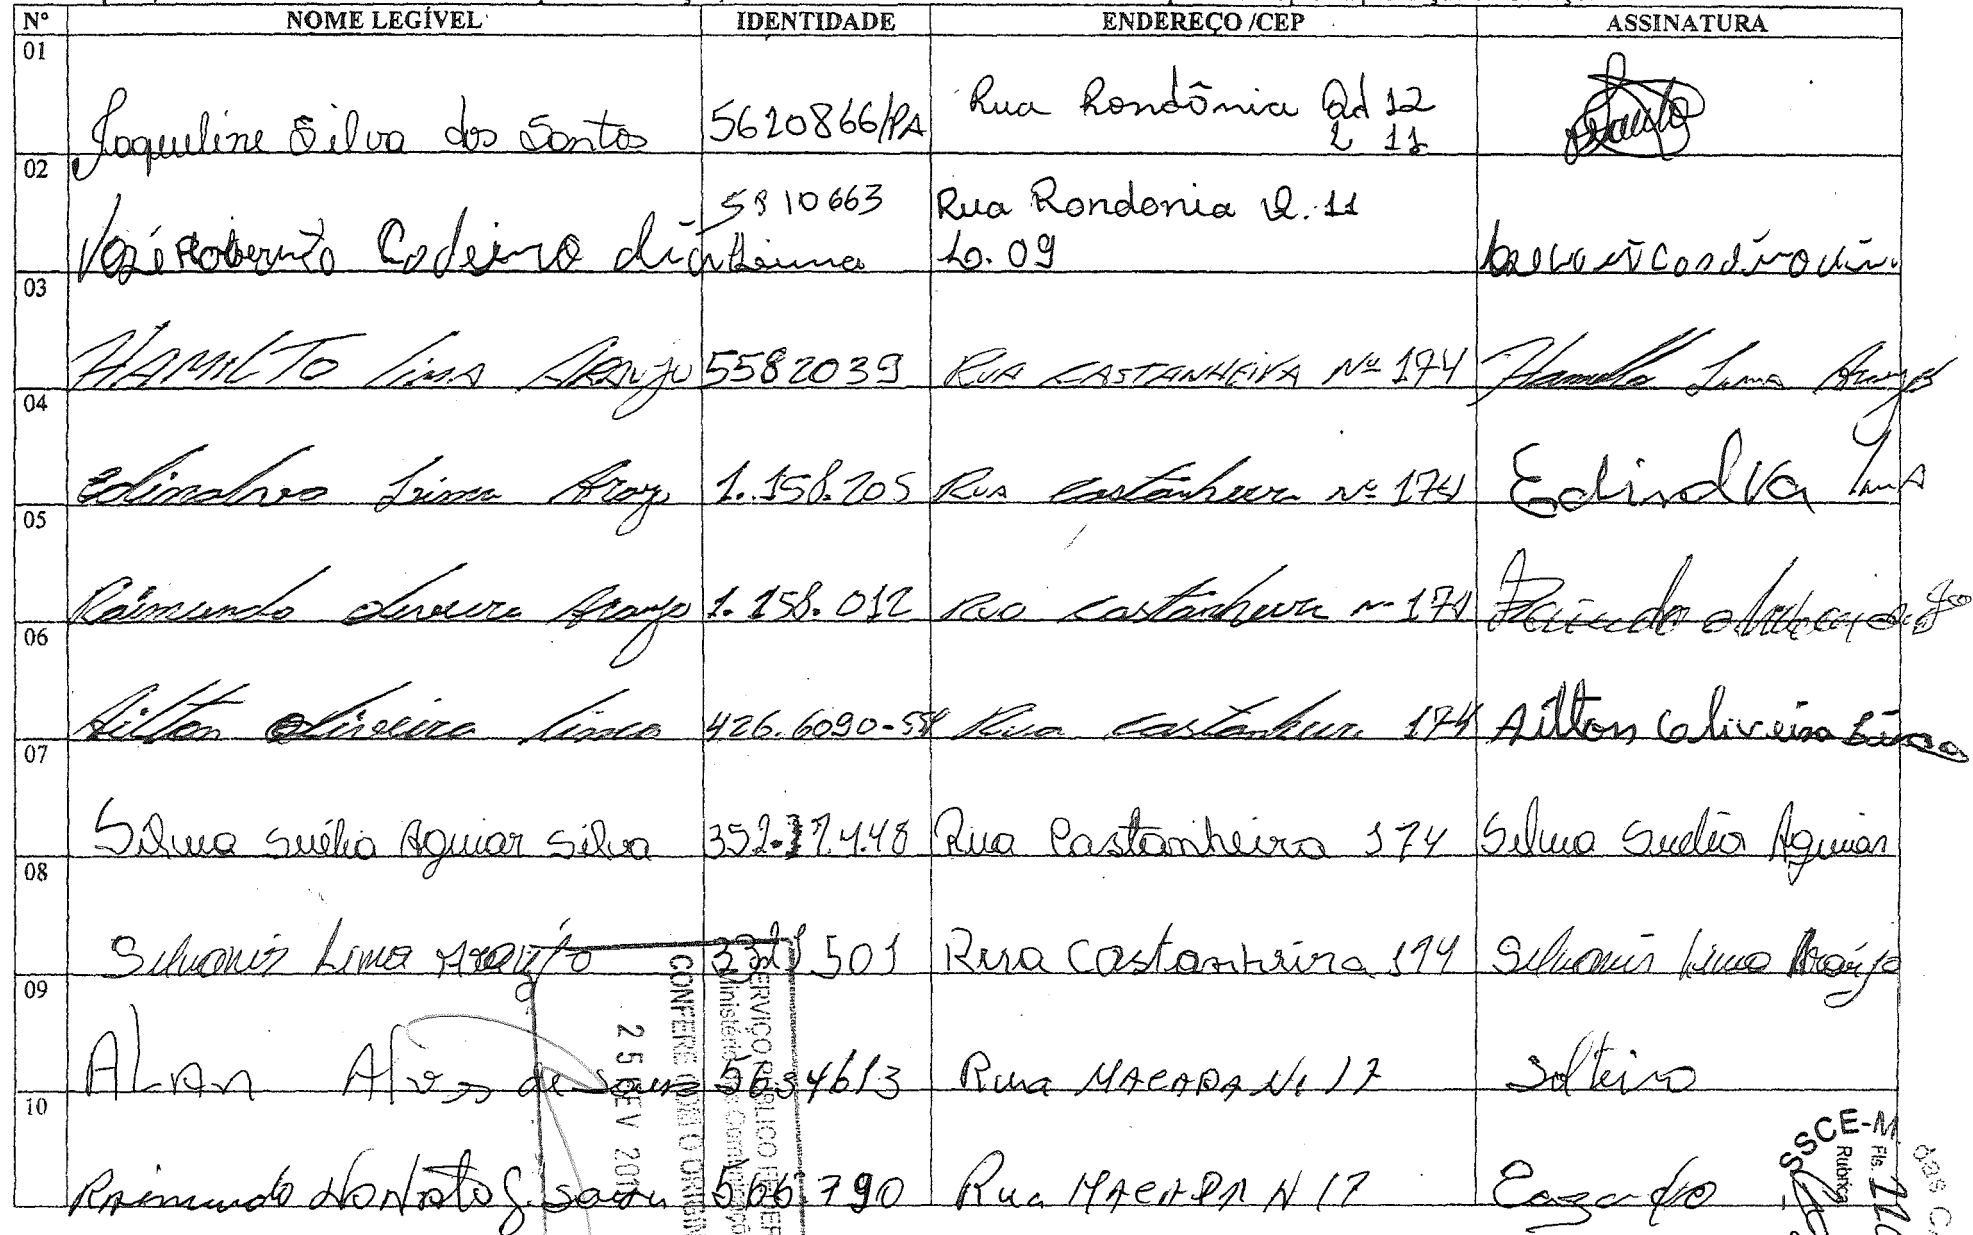 Nº NOME LEGÍVEL IDENTIDADE ENDEREÇO /CEP ASSINATURA
01 Jaqueline Silva dos Santos 5620866/PA Rua Rondônia Qd 12
L 11
02 5810663 Rua Rondonia Q. 11
José Roberto Codeiro Lo. 09
03 HAMILTO Lima ARAUJO 5582039 RUA CASTANHEIRA Nº 174 Hamilto Lima Araujo
04 Edinalva Lima 1.158.205 Rua Castanheira Nº 174 Edinalva Lima
05 Raimundo Oliveira Araujo 1.158.012 Rua Castanheira nº 174
06 Ailton Oliveira Lima 426.6090-54 Rua Castanheira 174 Ailton Oliveira Lima
07 Silma Suélia Aguiar Silva Rua Castanheira 174 Silma Suelia Aguiar
08 Silvanis Lima Araújo 501 Rua Castanheira 174 Silvanis Lima Araújo
09 ALAN Alves de Souza 5634613 Rua MACAPA Nº 17 Solteiro
10 Raimundo Nonato G. Souza 566790 Rua MACAPA N 17 Cazado
SERVIÇO PÚBLICO FEDER
Ministério das Comunicaçõ
CONFERE COM O ORIGIN
25 FEV 201
SSCE-M
Fls.
Rubrica
das C